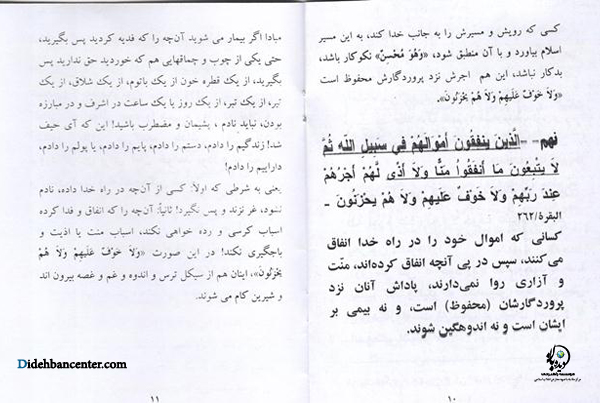 کسی که رویش و مسیرش را به جانب خدا کند، به این مسیر
اسلام بیاورد و با آن منطبق شود، «وَهُوَ مُحْسِنٌ» نکوکار باشد،
بدکار نباشد، این هم اجرش نزد پروردگارش محفوظ است
«وَلَا خَوْفٌ عَلَيهِمْ وَلَا هُمْ يَحْزَنُونَ».
نهم- -الَّذِينَ يُنفِقُونَ أَمْوَالَهُمْ فِي سَبِيلِ اللَّهِ ثُمَّ
لَا يُتْبِعُونَ مَا أَنفَقُوا مَنًّا وَلَا أَذًى لَّهُمْ أَجْرُهُمْ
عِندَ رَبِّهِمْ وَلَا خَوْفٌ عَلَيهِمْ وَلَا هُمْ يَحْزَنُونَ -
البقرة/٢٦٢
کسانی که اموال خود را در راه خدا انفاق
می‌کنند، سپس در پی آنچه انفاق کرده‌اند، منّت
و آزاری روا نمی‌دارند، پاداش آنان نزد
پروردگارشان (محفوظ) است، و نه بیمی بر
ایشان است و نه اندوهگین شوند.
۱۰
مبادا اگر بیمار می شوید آن‌چه را که فدیه کردید پس بگیرید،
حتی یکی از چوب و چماقهایی هم که خوردید حق ندارید پس
بگیرید، از یک قطره خون از یک باتوم، از یک شلاق، از یک
تیر، از یک تیر، از یک روز یا یک ساعت در اشرف و در مبارزه
بودن، نباید نادم ، پشیمان و مضطرب باشید! این که آی حیف
شد! زندگیم را دادم، دستم را دادم، پایم را دادم، یا پولم را دادم،
داراییم را دادم!
یعنی به شرطی که اولاً: کسی از آن‌چه در راه خدا داده، نادم
نشود، غر نزند و پس نگیرد! ثانیاً: آن‌چه را که انفاق و فدا کرده
اسباب کرسی و رده خواهی نکند، اسباب منت یا اذیت و
باجگیری نکند! در این صورت «وَلَا خَوْفٌ عَلَيهِمْ وَلَا هُمْ
يَحْزَنُونَ»، اینان هم از سیکل ترس و اندوه و غم و غصه بیرون اند
و شیرین کام می شوند.
۱۱
Didehbancenter.com